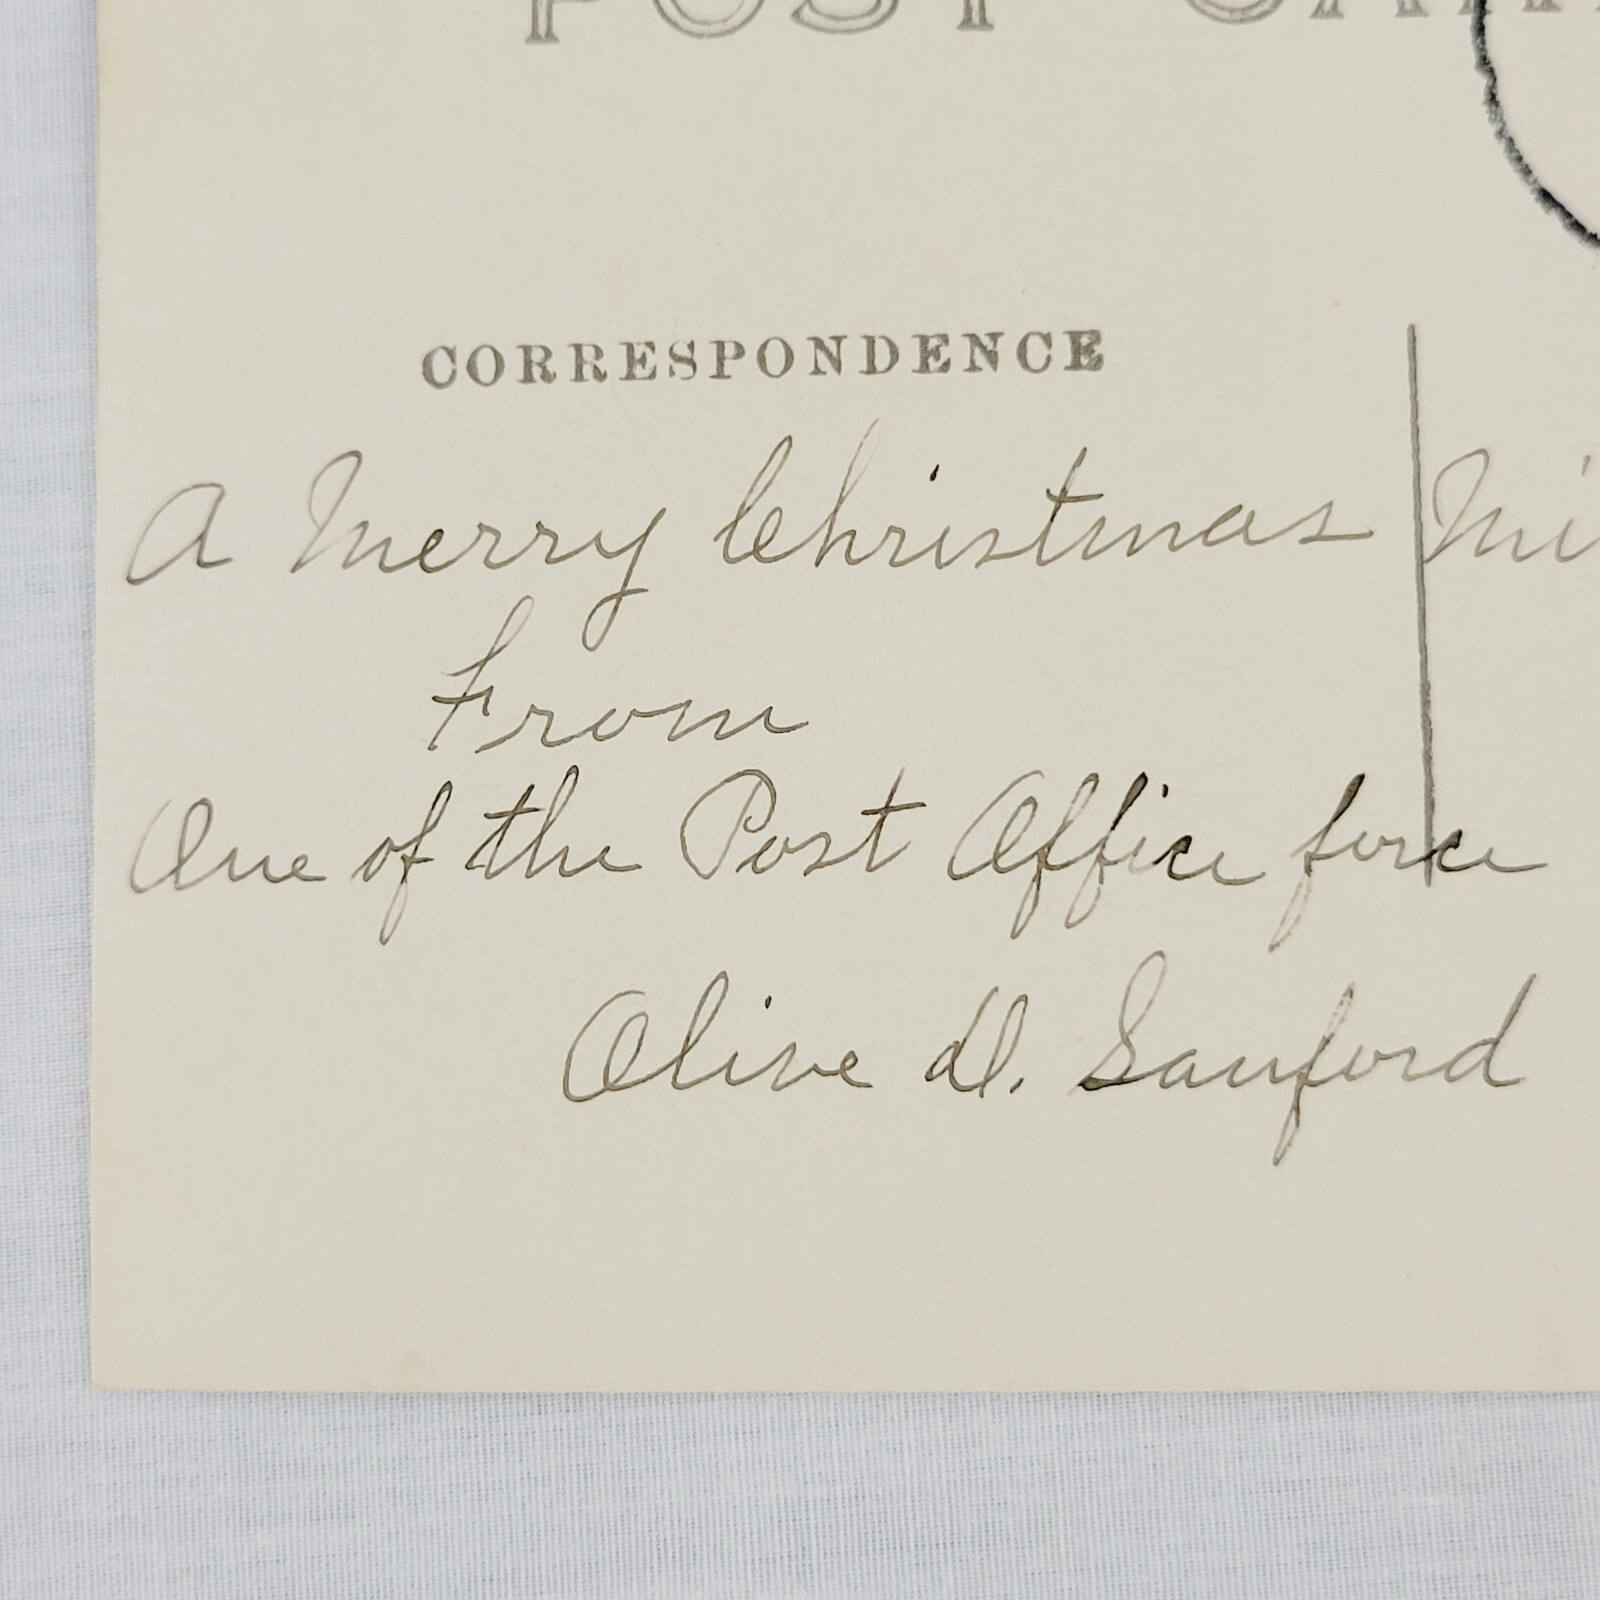 POST CAR
CORRESPONDENCE
A Merry Christmas
From
One of the Post Office force
Olive D. Sanford